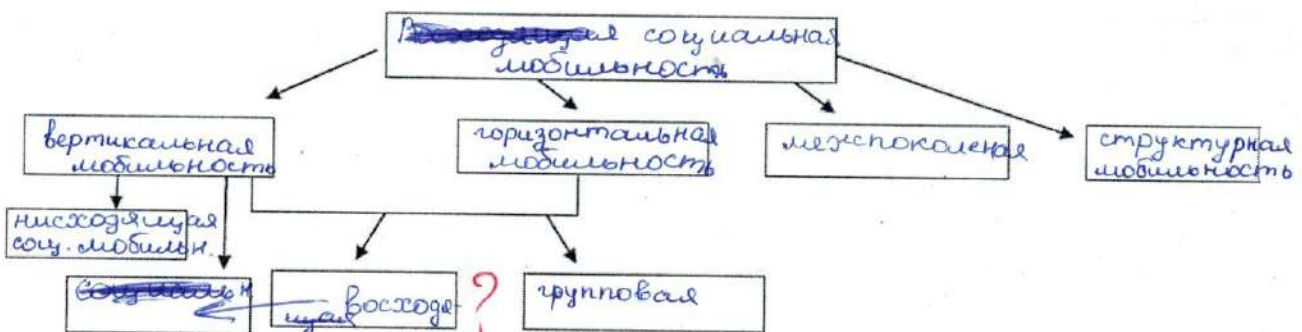 социальная
мобильность
вертикальная
мобильность
горизонтальная
мобильность
межспоколеная
структурная
мобильность
нисходящая
соц. мобильн.
восходя-
щая
?
групповая